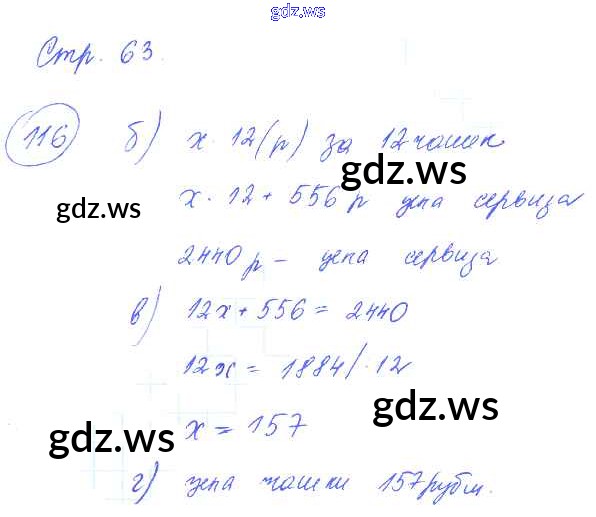 gdz.ws
Стр. 63.
116 б) x · 12 (р) за 12 чашек
gdz.ws
x · 12 + 556 р цена сервиза
gdz.ws
2440 р – цена сервиза
в) 12x + 556 = 2440
12x = 1884 / · 12
gdz.ws
x = 157
gdz.ws
г) цена чашки 157 рубл.